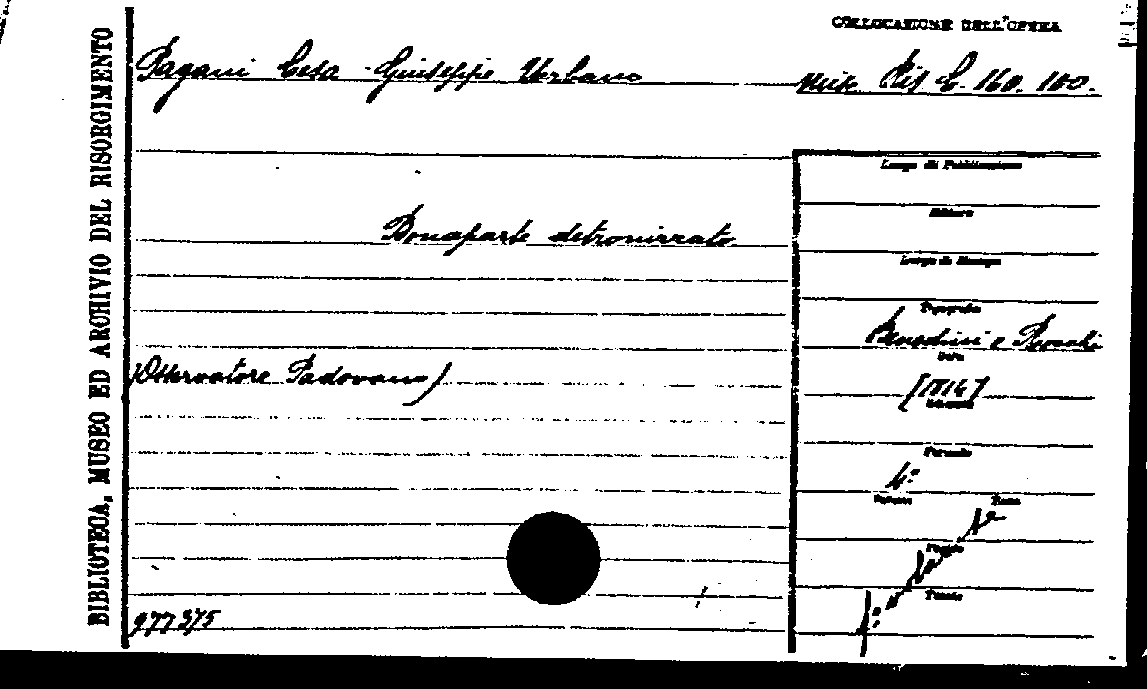 COLLOCAZIONE DELL'OPERA
BIBLIOTECA, MUSEO ED ARCHIVIO DEL RISORGIMENTO
Pagani Cesa Giuseppe Urbano
Ris C. 160. 100.
Luogo di Pubblicazione
Bonaparte detronizzato
Editore
Luogo di Stampa
Tipografia
e
Data
(Osservatore Padovano)
[1814]
Formato
4°
Volume
Tomo
Pagine
Tavole
977375